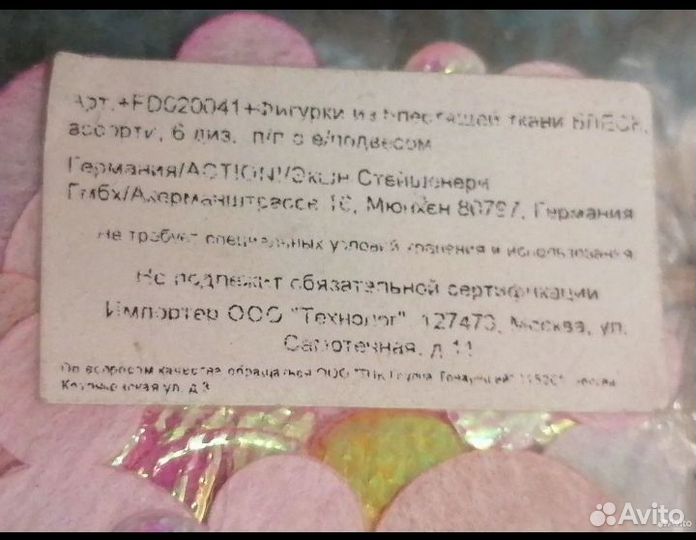 Арт.+FD020041+Фигурки из блестящей ткани БЛЕСК,
ассорти, 6 диз. п/п с е/подвесом
Германия/ACTION!/Экшн Стейшенери
Гмбх/Акерманштрассе 16, Мюнхен 80797, Германия
Не требует специальных условий хранения и использования
Не подлежит обязательной сертификации
Импортер ООО "Технолог", Москва, ул.
Самотечная, д 11
По вопросам качества обращаться ООО
ул. д
Avito